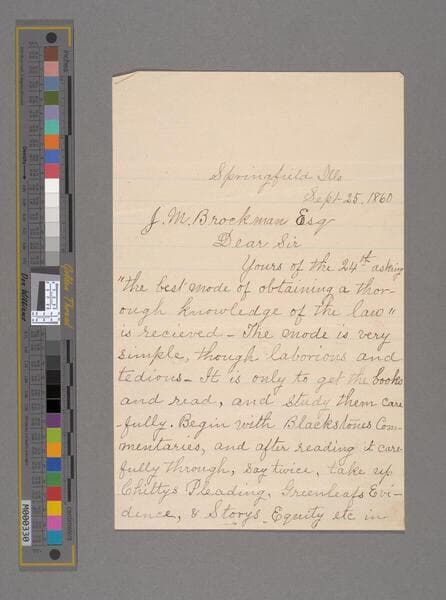 Springfield Ills
Sept 25, 1860
J. M. Brockman Esq
Dear Sir
Yours of the 24th asking
"the best mode of obtaining a thor-
ough knowledge of the law"
is recieved - The mode is very
simple, though laborious and
tedious - It is only to get the books
and read, and study them care
-fully. Begin with Blackstones Com-
mentaries, and after reading it care
fully through, say twice, take up
Chittys Pleading, Greenleafs Evi-
dence, & Storys Equity etc in
inches
centimeters
Golden Thread
Don Williams
M000330